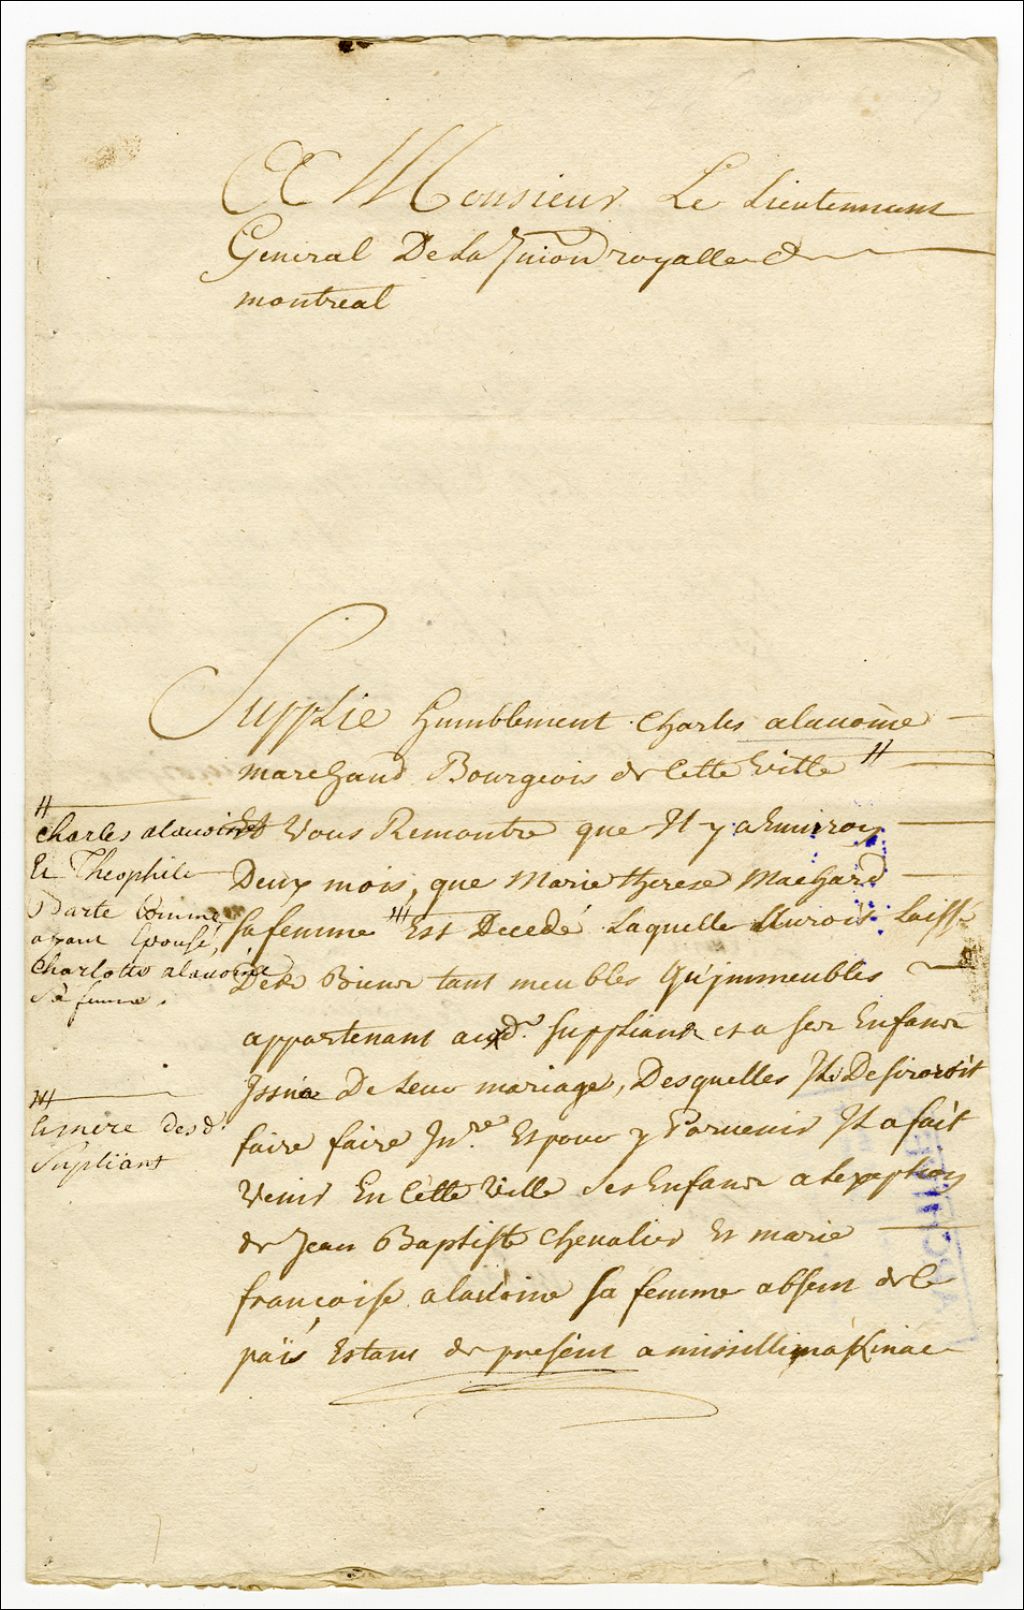 A Monsieur Le Lieutennant
General De La Jurion royalle de
montreal
Supplie humblement Charles alauoine
marchand Bourgeois de Cette Ville //
Et Vous Remontre que Il y a Enuiron
Deux mois, que Marie therese Machard
sa femme /// Est Decedé Laquelle auroit Laissé
Des Biens tant meubles Qu'jmmeubles
appartenant aud. Suppliant et a ses Enfans
Issüs De Leur mariage, Desquelles Il Desireroit
faire faire Inre Et pour y Paruenir Il a fait
Venir En Cette Ville ses Enfans a lexeption
de Jean Baptiste Chevalier Et marie
francoise alauoine sa femme absent de Ce
païs Estant de present a missillimakinac
//
Charles alauoine
Et Theophile
Barte Comme
ayant Epousé,
Charlotte alauoine
Sa femme.
///
la mere desd.
Supliant